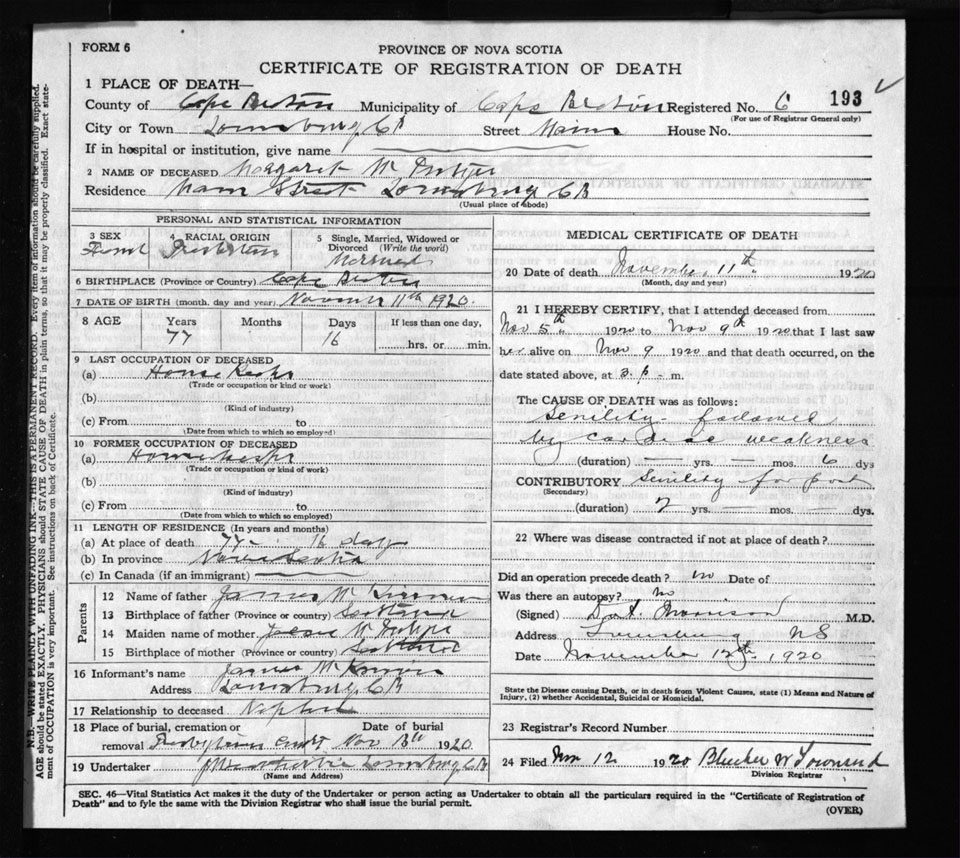 FORM 6
PROVINCE OF NOVA SCOTIA
CERTIFICATE OF REGISTRATION OF DEATH
1 PLACE OF DEATH—
County of Cape Breton Municipality of Cape Breton Registered No. 6 193
(For use of Registrar General only)
City or Town Louisburg, C B Street Main House No.
If in hospital or institution, give name
2 NAME OF DECEASED Margaret Mc
Residence Main Street Louisburg CB
(Usual place of abode)
PERSONAL AND STATISTICAL INFORMATION
3 SEX 4 RACIAL ORIGIN 5 Single, Married, Widowed or Divorced (Write the word)
Married
6 BIRTHPLACE (Province or Country) Cape Breton
7 DATE OF BIRTH (month, day and year) November 11th 1920.
8 AGE Years Months Days If less than one day,
77 16 hrs. or min.
9 LAST OCCUPATION OF DECEASED
(a) House
(Trade or occupation or kind of work)
(b)
(Kind of industry)
(c) From to
(Date from which to which so employed)
10 FORMER OCCUPATION OF DECEASED
(a)
(Trade or occupation or kind of work)
(b)
(Kind of industry)
(c) From to
(Date from which to which so employed)
11 LENGTH OF RESIDENCE (In years and months)
(a) At place of death 77 - 16 days
(b) In province Nova Scotia
(c) In Canada (if an immigrant)
Parents
12 Name of father James Mc
13 Birthplace of father (Province or country) Scotland
14 Maiden name of mother Mc
15 Birthplace of mother (Province or country) Scotland
16 Informant's name James Mc
Address Louisburg, CB
17 Relationship to deceased Nephew
18 Place of burial, cremation or Date of burial
removal Presbyterian Nov 13th 1920.
19 Undertaker Louisburg, CB
(Name and Address)
MEDICAL CERTIFICATE OF DEATH
20 Date of death November 11th 1920
(Month, day and year)
21 I HEREBY CERTIFY, that I attended deceased from
Nov 5th 1920 to Nov 9th 1920 that I last saw
her alive on Nov 9 1920 and that death occurred, on the
date stated above, at 3. p - m.
The CAUSE OF DEATH was as follows:
Senility followed
by cardiac weakness
(duration) — yrs. — mos. 6 dys
CONTRIBUTORY Senility for past
(Secondary)
(duration) 2 yrs. — mos. — dys.
22 Where was disease contracted if not at place of death?
Did an operation precede death? no Date of
Was there an autopsy? No
(Signed) Morrison M.D.
Address Louisburg NS
Date November 12th 1920
State the Disease causing Death, or in death from Violent Causes, state (1) Means and Nature of
Injury, (2) whether Accidental, Suicidal or Homicidal.
23 Registrar's Record Number
24 Filed Nov 12 1920 W Townsend
Division Registrar
SEC. 46—Vital Statistics Act makes it the duty of the Undertaker or person acting as Undertaker to obtain all the particulars required in the "Certificate of Registration of
Death" and to fyle the same with the Division Registrar who shall issue the burial permit.
(OVER)
N.B. WRITE PLAINLY, WITH UNFADING INK—THIS IS A PERMANENT RECORD. Every item of information should be carefully supplied.
AGE should be stated EXACTLY. PHYSICIANS should STATE CAUSE OF DEATH in plain terms, so that it may be properly classified. Exact state-
ment of OCCUPATION is very important. See instructions on back of Certificate.